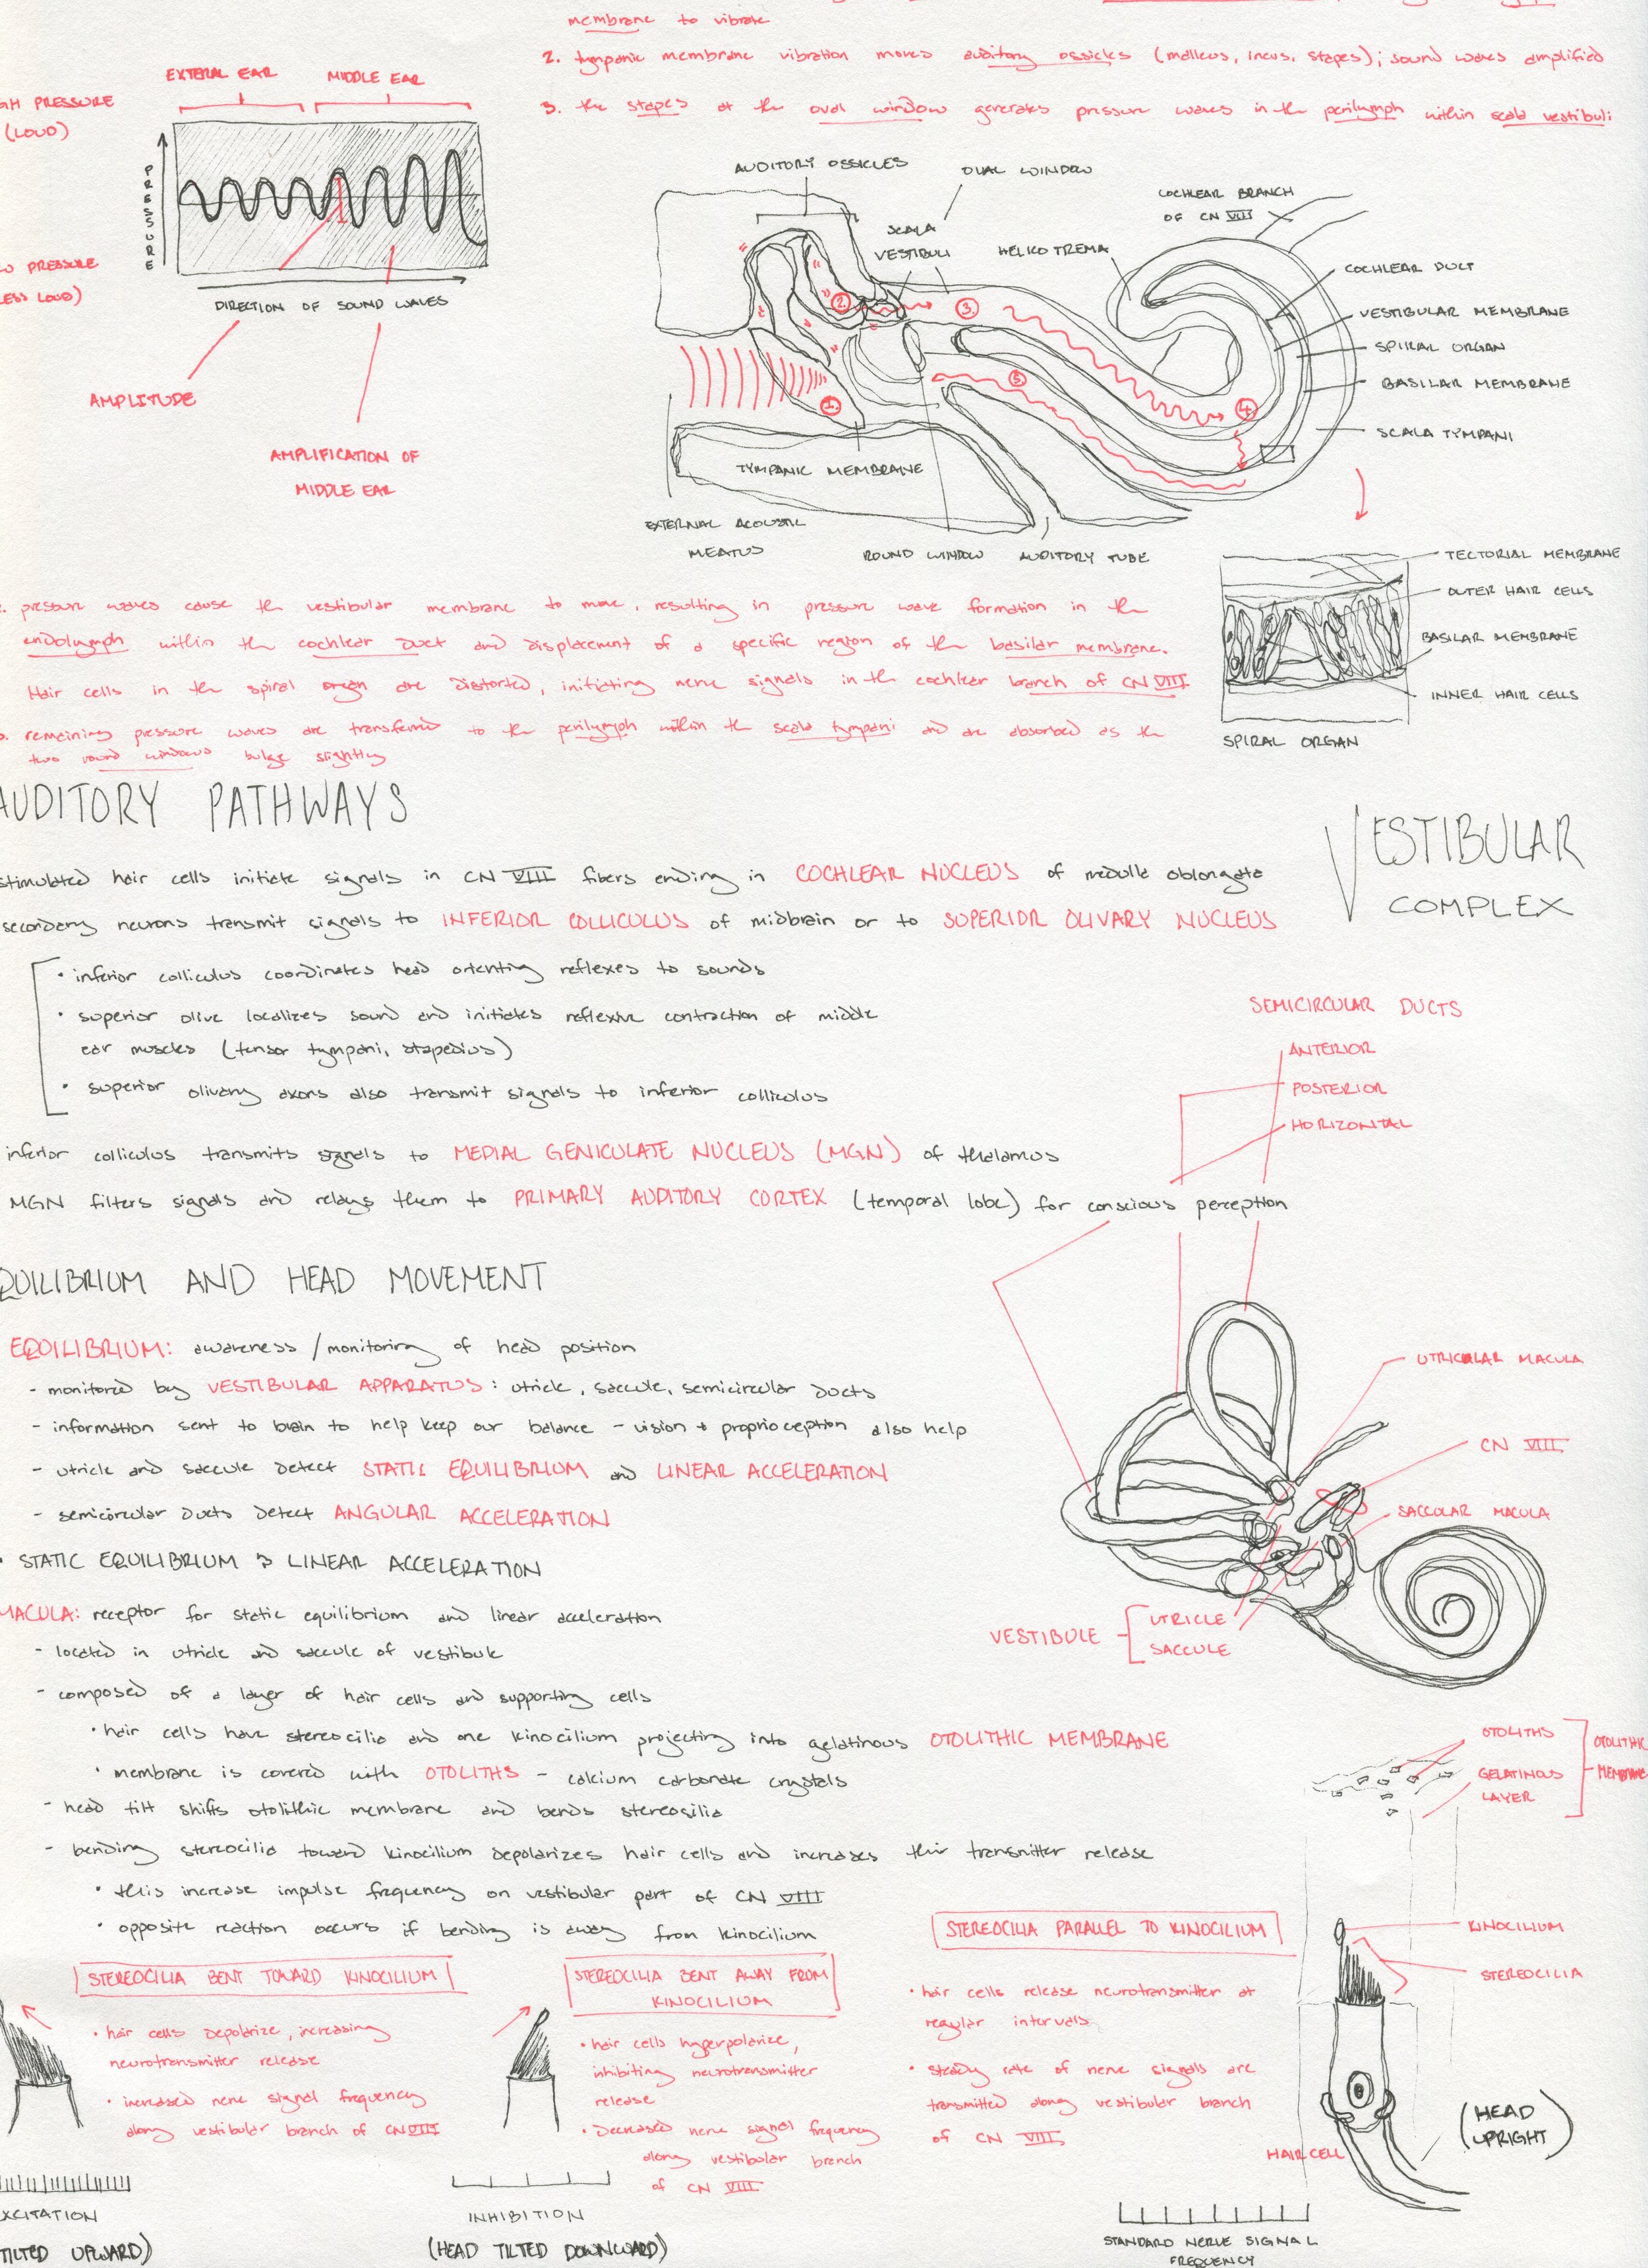 membrane to vibrate
2. tympanic membrane vibration moves auditory ossicles (malleus, incus, stapes); sound waves amplified
3. the stapes at the oval window generates pressure waves in the perilymph within scala vestibuli
EXTERAL EAR
MIDDLE EAR
GH PRESSURE
(LOUD)
PRESSURE
W PRESSURE
LESS LOUD)
DIRECTION OF SOUND WAVES
AMPLITUDE
AMPLIFICATION OF
MIDDLE EAR
AUDITORY OSSICLES
OVAL WINDOW
COCHLEAR BRANCH
OF CN VIII
SCALA
VESTIBULI
HELICOTREMA
COCHLEAR DUCT
VESTIBULAR MEMBRANE
SPIRAL ORGAN
BASILAR MEMBRANE
SCALA TYMPANI
1.
2.
3.
4.
5.
TYMPANIC MEMBRANE
EXTERNAL ACOUSTIC
MEATUS
ROUND WINDOW
AUDITORY TUBE
TECTORIAL MEMBRANE
OUTER HAIR CELLS
BASILAR MEMBRANE
INNER HAIR CELLS
SPIRAL ORGAN
. pressure waves cause the vestibular membrane to move, resulting in pressure wave formation in the
endolymph within the cochlear duct and displacement of a specific region of the basilar membrane.
Hair cells in the spiral organ are distorted, initiating nerve signals in the cochlear branch of CN VIII
. remaining pressure waves are transferred to the perilymph within the scala tympani and are absorbed as the
two round windows bulge slightly
AUDITORY PATHWAYS
stimulated hair cells initiate signals in CN VIII fibers ending in COCHLEAR NUCLEUS of medulla oblongata
secondary neurons transmit signals to INFERIOR COLLICULUS of midbrain or to SUPERIOR OLIVARY NUCLEUS
• inferior colliculus coordinates head orienting reflexes to sounds
• superior olive localizes sound and initiates reflexive contraction of middle
ear muscles (tensor tympani, stapedius)
• superior olivary axons also transmit signals to inferior colliculus
inferior colliculus transmits signals to MEDIAL GENICULATE NUCLEUS (MGN) of thalamus
MGN filters signals and relays them to PRIMARY AUDITORY CORTEX (temporal lobe) for conscious perception
VESTIBULAR
COMPLEX
SEMICIRCULAR DUCTS
ANTERIOR
POSTERIOR
HORIZONTAL
QUILIBRIUM AND HEAD MOVEMENT
EQUILIBRIUM: awareness / monitoring of head position
- monitored by VESTIBULAR APPARATUS: utricle, saccule, semicircular ducts
- information sent to brain to help keep our balance - vision + proprioception also help
- utricle and saccule detect STATIC EQUILIBRIUM and LINEAR ACCELERATION
- semicircular ducts detect ANGULAR ACCELERATION
• STATIC EQUILIBRIUM & LINEAR ACCELERATION
MACULA: receptor for static equilibrium and linear acceleration
- located in utricle and saccule of vestibule
- composed of a layer of hair cells and supporting cells
• hair cells have stereocilia and one kinocilium projecting into gelatinous OTOLITHIC MEMBRANE
• membrane is covered with OTOLITHS - calcium carbonate crystals
- head tilt shifts otolithic membrane and bends stereosilia
- bending stereocilia toward kinocilium depolarizes hair cells and increases their transmitter release
• this increase impulse frequency on vestibular part of CN VIII
• opposite reaction occurs if bending is away from kinocilium
UTRICULAR MACULA
CN VIII
SACCULAR MACULA
VESTIBULE
UTRICLE
SACCULE
OTOLITHS
GELATINOUS
LAYER
OTOLITHIC
MEMBRANE
STEREOCILIA BENT TOWARD KINOCILIUM
• hair cells depolarize, increasing
neurotransmitter release
• increased nerve signal frequency
along vestibular branch of CN VIII
XCITATION
TILTED UPWARD)
STEREOCILIA BENT AWAY FROM
KINOCILIUM
• hair cells hyperpolarize,
inhibiting neurotransmitter
release
• Decreased nerve signal frequency
along vestibular branch
of CN VIII
INHIBITION
(HEAD TILTED DOWNWARD)
STEREOCILIA PARALLEL TO KINOCILIUM
• hair cells release neurotransmitter at
regular intervals
• steady rate of nerve signals are
transmitted along vestibular branch
of CN VIII
KINOCILIUM
STEREOCILIA
HAIR CELL
(HEAD
UPRIGHT)
STANDARD NERVE SIGNAL
FREQUENCY